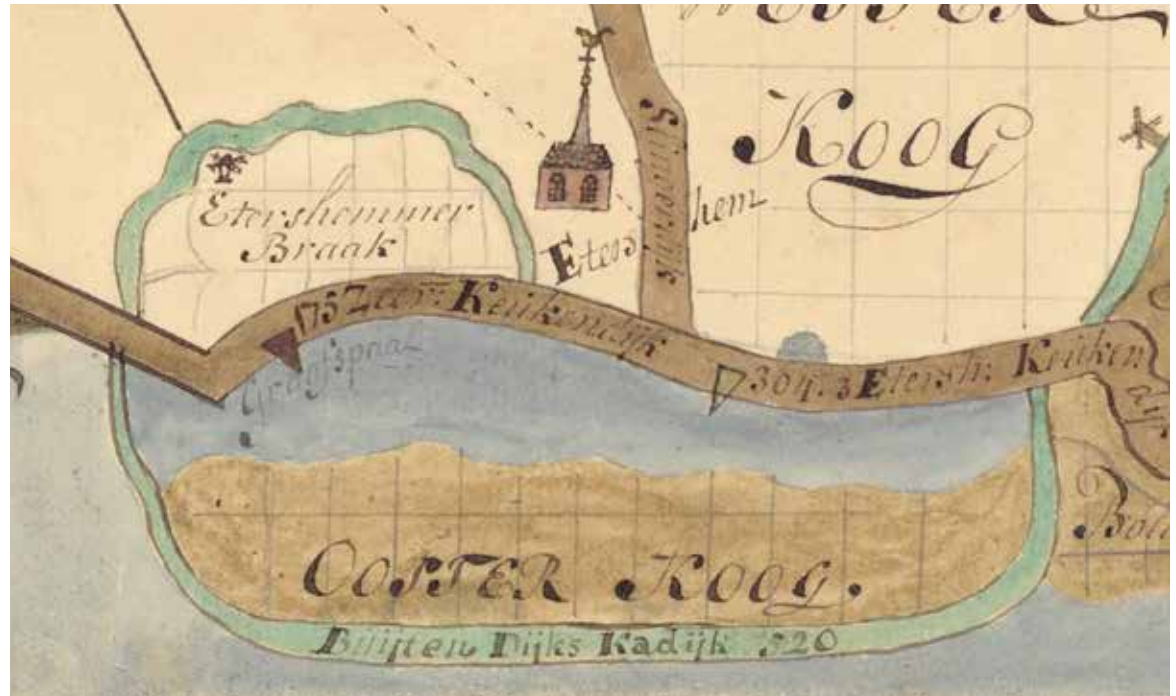 KOOG
Etershemmer
Braak
Etershem
175 Zeer: Keukendijk
Graafspaal
304. 3 Etersh: Keuken
OOSTER KOOG.
Buijten Dijks Kadijk 520